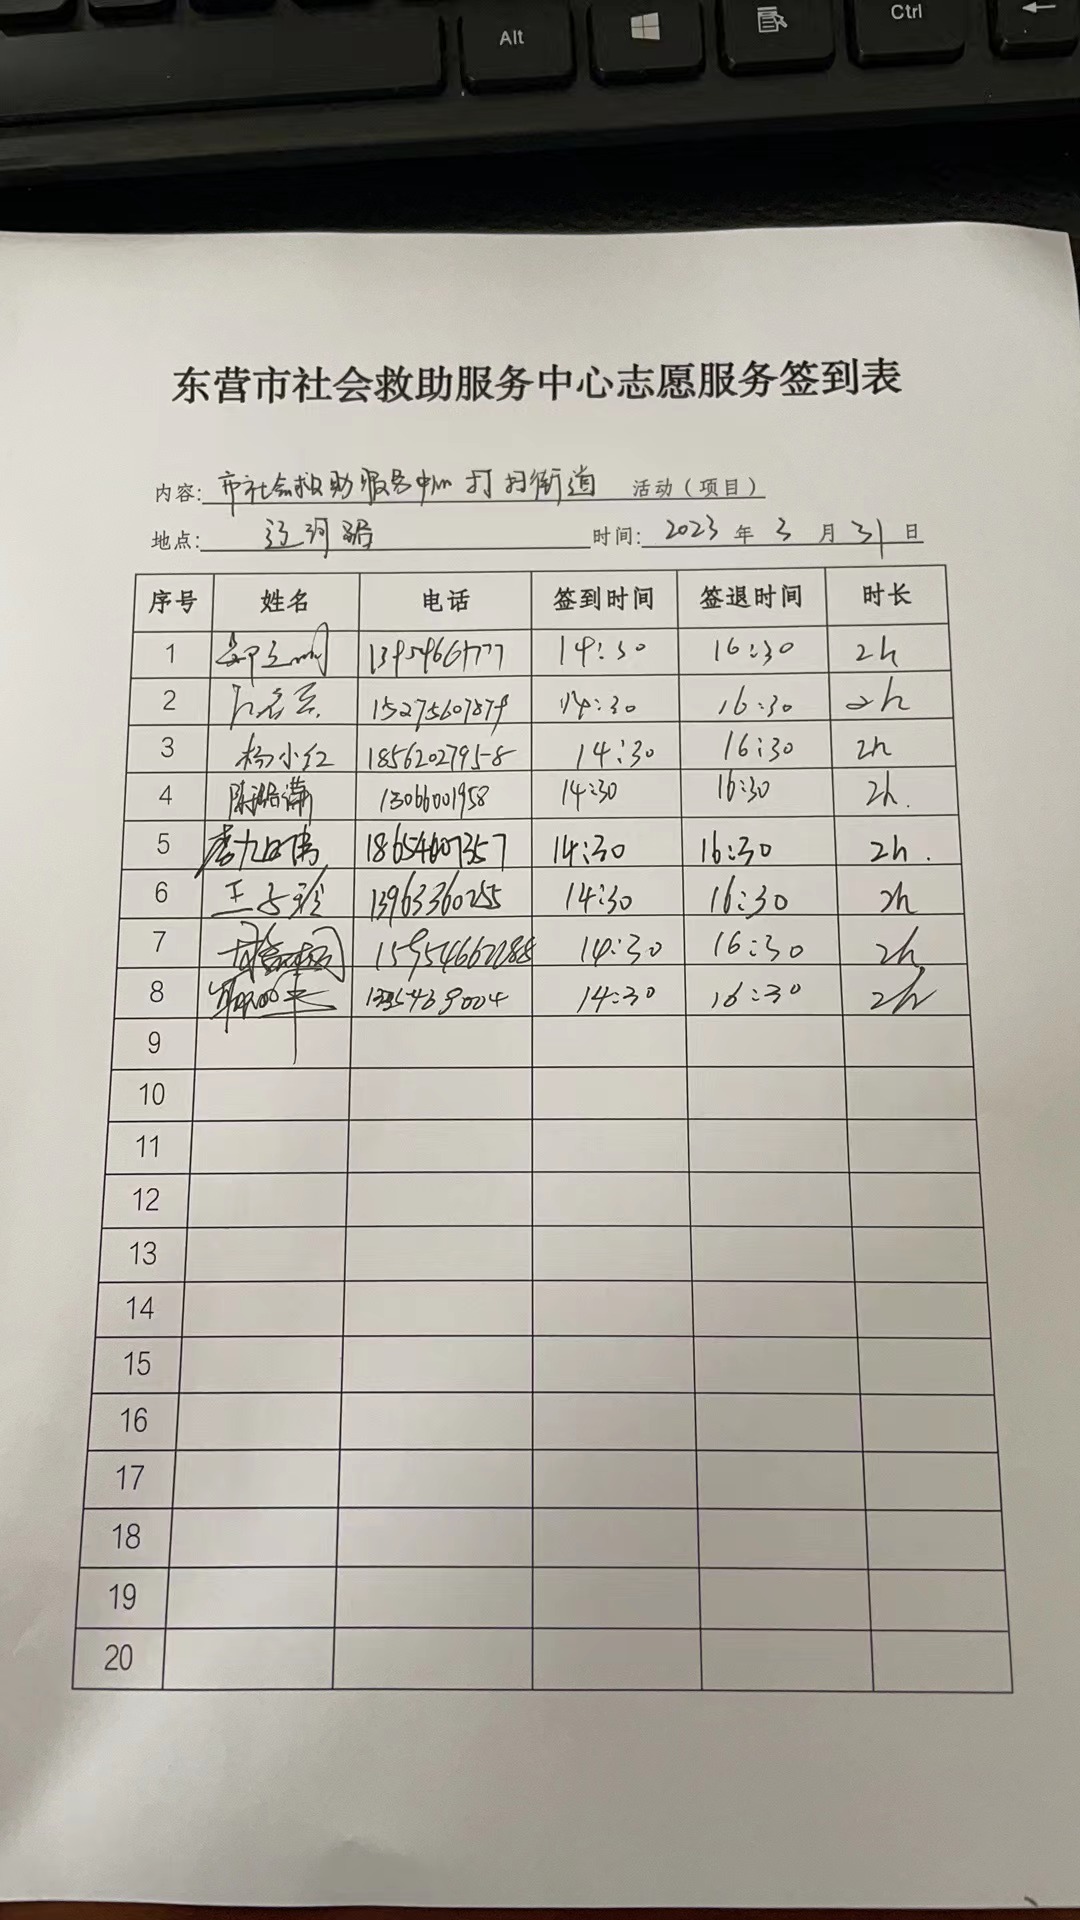 Alt
Ctrl
东营市社会救助服务中心志愿服务签到表
内容: 市社会救助服务中心打扫街道 活动（项目）
地点: 辽河路 时间: 2023 年 3 月 31 日
序号 姓名 电话 签到时间 签退时间 时长
1 14:30 16:30 2h
2 15275607879 14:30 16:30 2h
3 杨小红 18562027958 14:30 16:30 2h
4 13066001958 14:30 16:30 2h.
5 18654607357 14:30 16:30 2h.
6 13963360255 14:30 16:30 2h
7 14:30 16:30 2h
8 14:30 16:30 2h
9
10
11
12
13
14
15
16
17
18
19
20